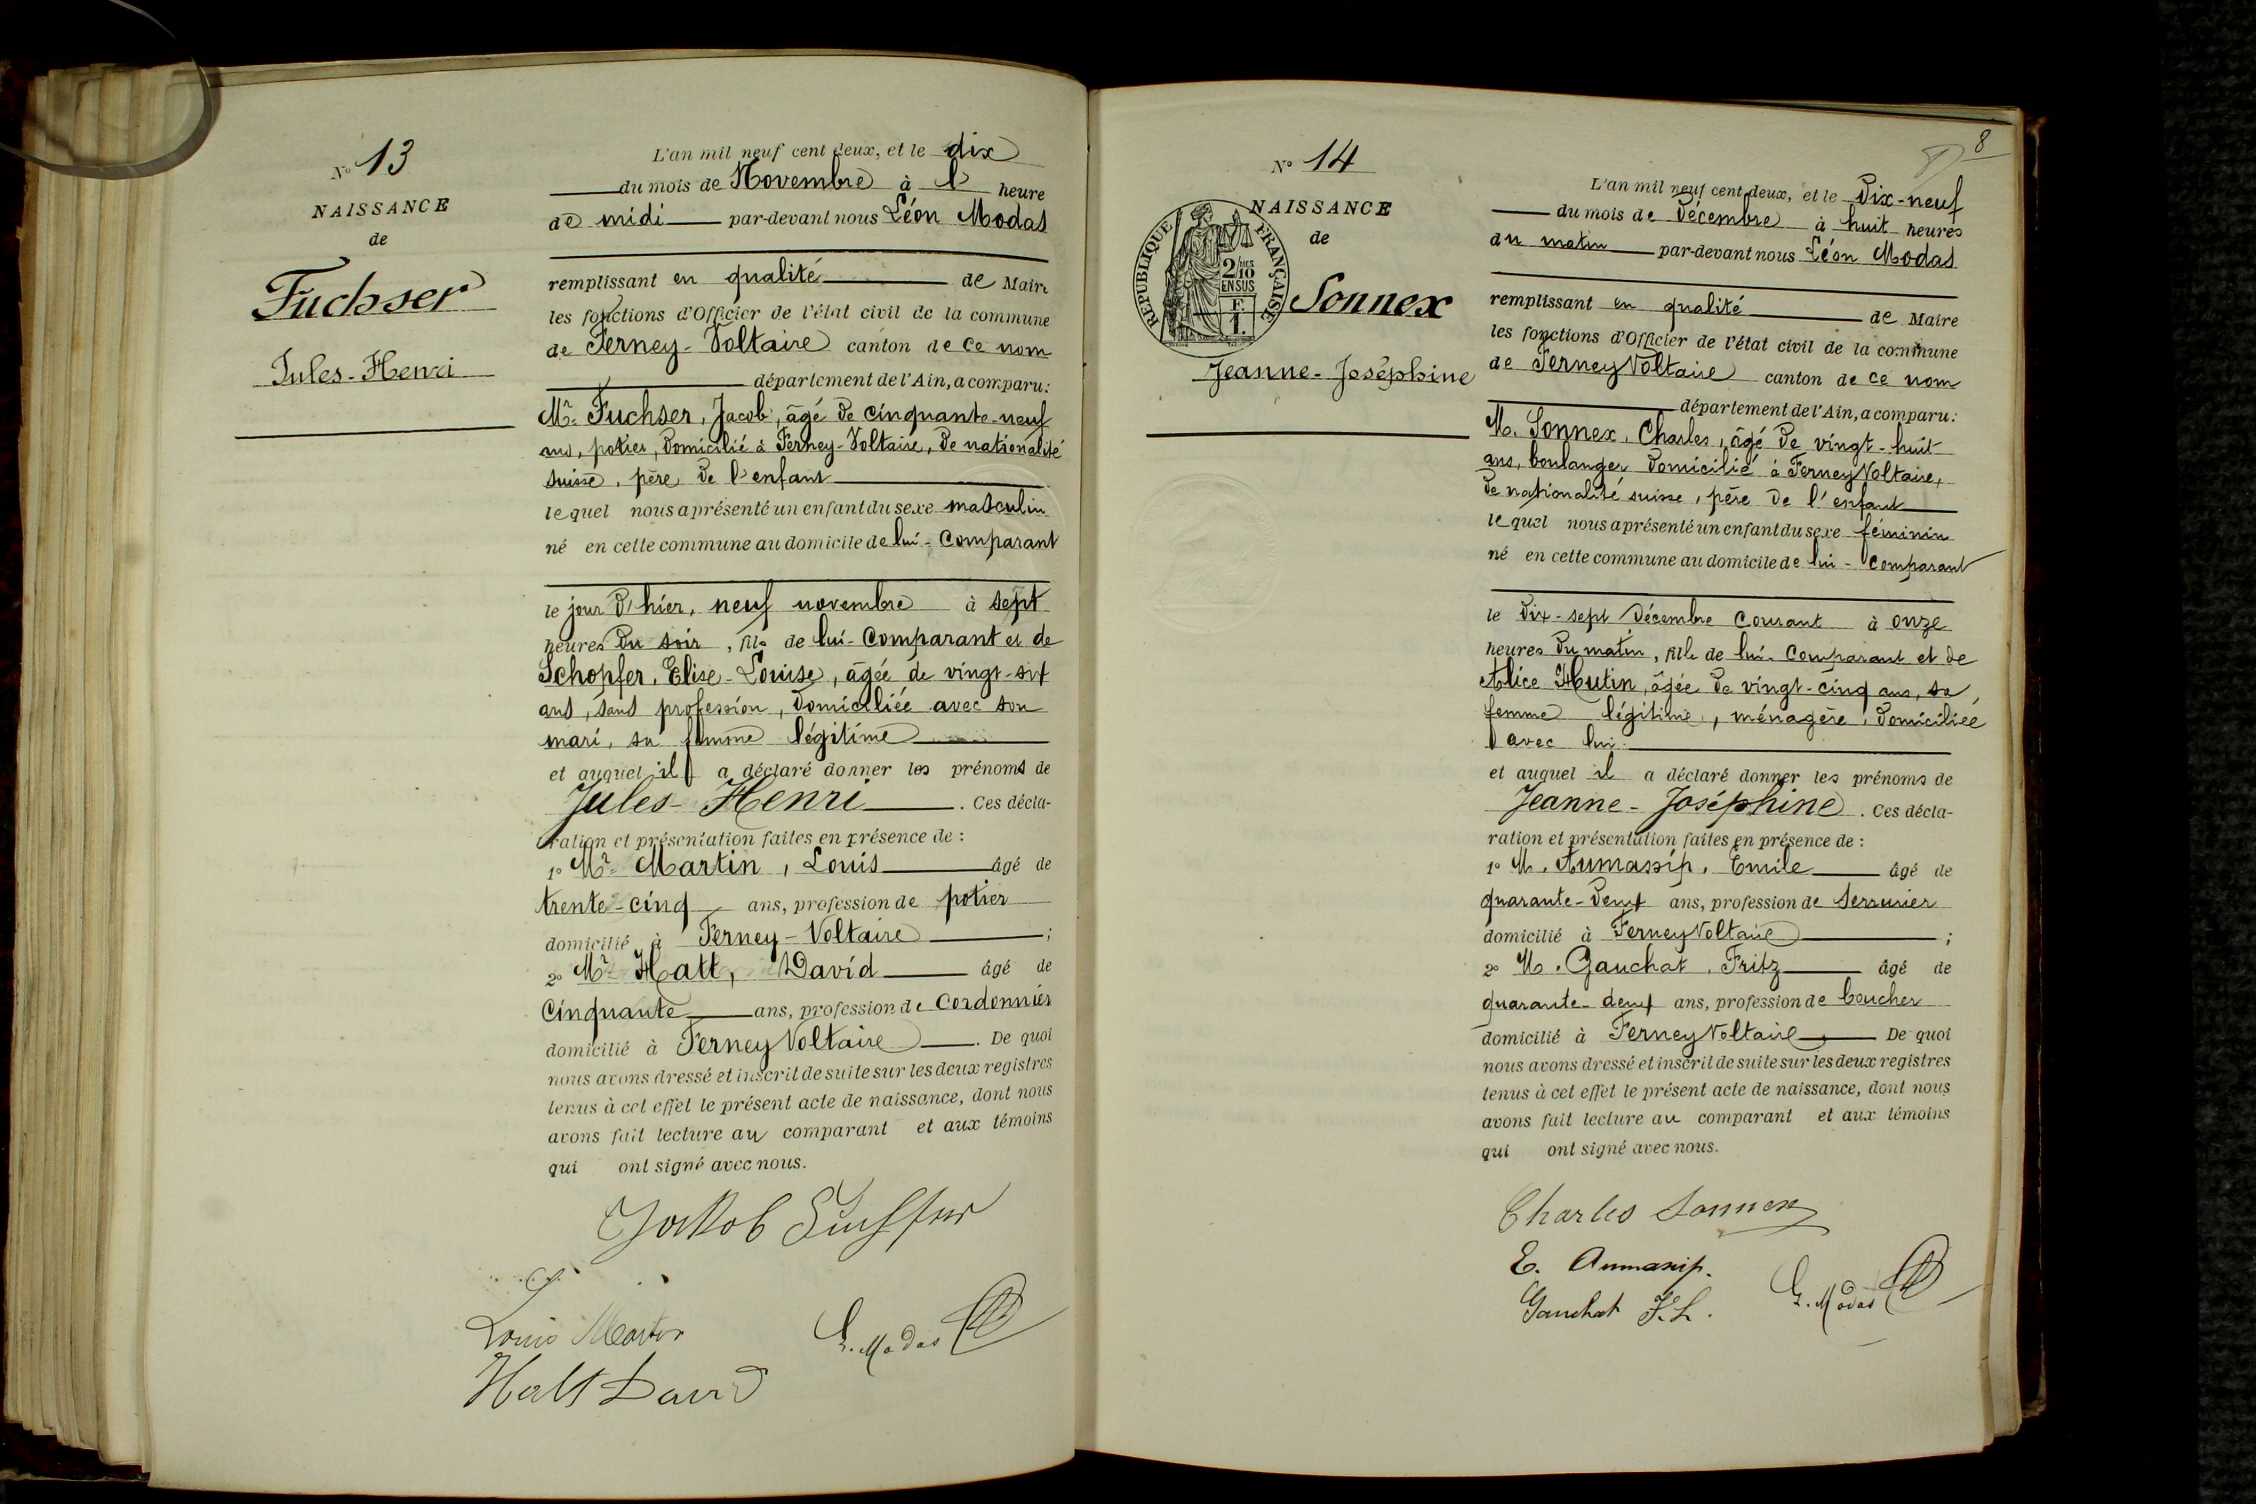 N° 13
NAISSANCE
de
Fuchser
Jules-Henri
L'an mil neuf cent deux, et le dix
du mois de Novembre à l' heure
de midi par-devant nous Léon Modas
remplissant en qualité de Maire
les fonctions d'Officier de l'état civil de la commune
de Ferney-Voltaire canton de ce nom
département de l'Ain, a comparu:
Mr. Fuchser, Jacob, âgé de cinquante-neuf
ans, potier, domicilié à Ferney-Voltaire, de nationalité
suisse, père de l'enfant
lequel nous a présenté un enfant du sexe masculin
né en cette commune au domicile de lui-Comparant
le jour d'hier, neuf novembre à sept
heures du soir, fils de lui-Comparant et de
Schopfer, Elise-Louise, âgée de vingt-six
ans, sans profession, domiciliée avec son
mari, sa femme légitime
et auquel il a déclaré donner les prénoms de
Jules-Henri. Ces décla-
ration et présentation faites en présence de :
1° Mr. Martin, Louis âgé de
trente-cinq ans, profession de potier
domicilié à Ferney-Voltaire ;
2° Mr. Hatt, David âgé de
Cinquante ans, profession de Cordonnier
domicilié à Ferney Voltaire. De quoi
nous avons dressé et inscrit de suite sur les deux registres
tenus à cet effet le présent acte de naissance, dont nous
avons fait lecture au comparant et aux témoins
qui ont signé avec nous.
Jakob Fuchser
Louis Martin
L. Modas
Hatt David
8
N° 14
NAISSANCE
de
RÉPUBLIQUE FRANÇAISE
2/10 EN SUS
F.
1.
Sonnex
Jeanne-Joséphine
L'an mil neuf cent deux, et le Dix-neuf
du mois de Décembre à huit heures
du matin par-devant nous Léon Modas
remplissant en qualité de Maire
les fonctions d'Officier de l'état civil de la commune
de Ferney Voltaire canton de ce nom
département de l'Ain, a comparu:
M. Sonnex, Charles, âgé de vingt-huit
ans, boulanger domicilié à Ferney Voltaire,
de nationalité suisse, père de l'enfant
lequel nous a présenté un enfant du sexe féminin
né en cette commune au domicile de lui-Comparant
le dix-sept Décembre Courant à onze
heures du matin, fille de lui-Comparant et de
Alice Hutin, âgée de vingt-cinq ans, sa
femme légitime, ménagère, domiciliée
avec lui.
et auquel il a déclaré donner les prénoms de
Jeanne-Joséphine. Ces décla-
ration et présentation faites en présence de :
1° M. Aumassip, Emile âgé de
quarante-deux ans, profession de Serrurier
domicilié à Ferney Voltaire ;
2° M. Gauchat, Fritz âgé de
quarante-deux ans, profession de boucher
domicilié à Ferney Voltaire. De quoi
nous avons dressé et inscrit de suite sur les deux registres
tenus à cet effet le présent acte de naissance, dont nous
avons fait lecture au comparant et aux témoins
qui ont signé avec nous.
Charles Sonnex
E. Aumassip.
L. Modas
Gauchat F.L.